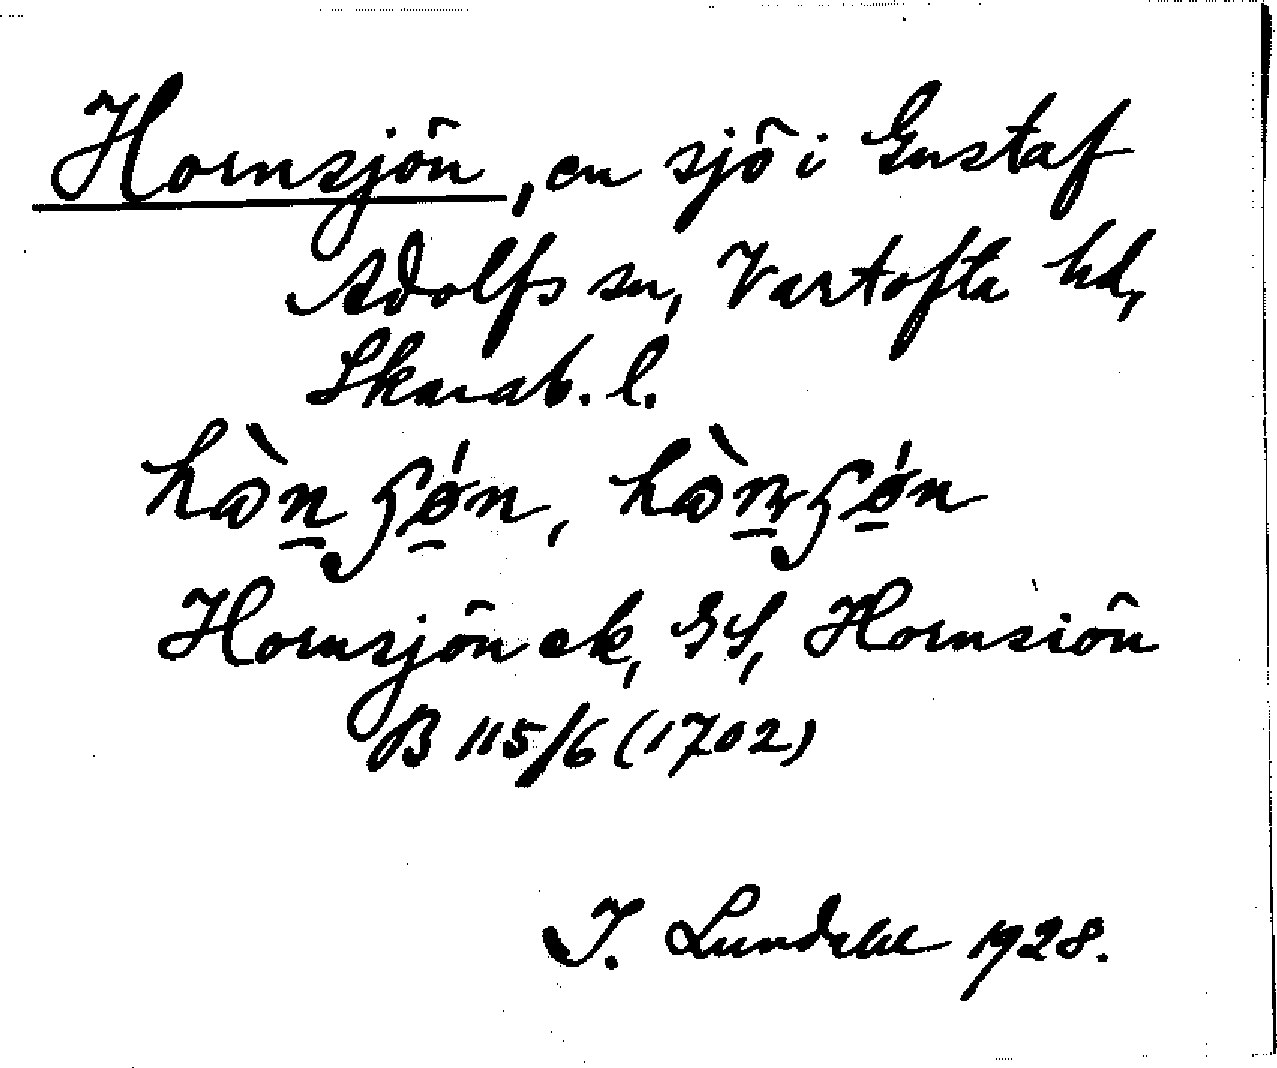 Hornsjön, en sjö i Gustaf
Adolfs sn, Vartofta hd,
Skarab. l.
Hornsjön ek, GS, Hornsiön
B 115/6 (1702)
I. Lundahl 1928.